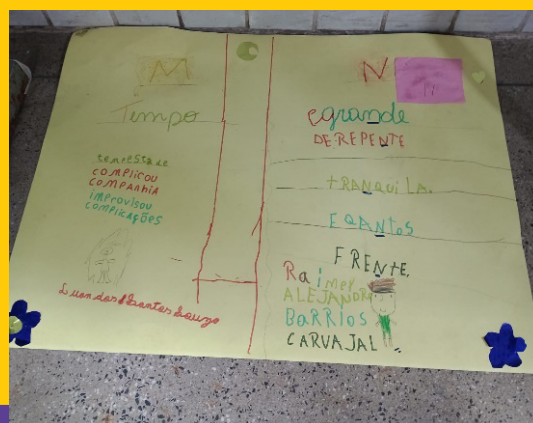 M
Tempo
tempestade
COMPLICOU
COMPANHIA
improvisou
COMPLICAÇÕES
Luan dos Santos Souza
N
egrande
DE REPENTE
TRANQUILA.
EQANtos
FRENtE.
Raimer
ALEJANDRO
BaRRIOS
CARVAJAL.